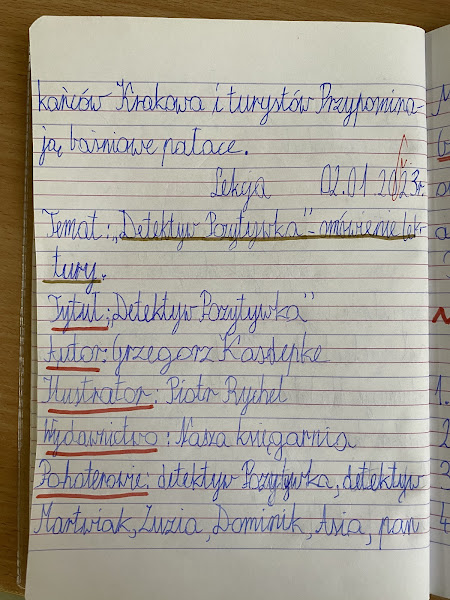 kańców Krakowa i turystów Przypomina-
ją baśniowe pałace.
Lekcja 02.01.2023r.
Temat: „Detektyw Pozytywka" - omówienie lek-
tury.
Tytuł: „Detektyw Pozytywka"
Autor: Grzegorz Kasdepke
Ilustrator: Piotr Rychel
Wydawnictwo: Nasza księgarnia
Bohaterowie: detektyw Pozytywka, detektyw
Martwiak, Zuzia, Dominik, Asia, pan
1.
2
3
4